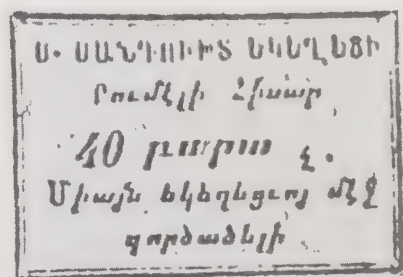 Ս. ՍԱՆԴՈՒԽՏ ԵԿԵՂԵՑԻ
Րումէլի Հիսար
40 բարա է.
Միայն եկեղեցւոյ մէջ
գործածելի